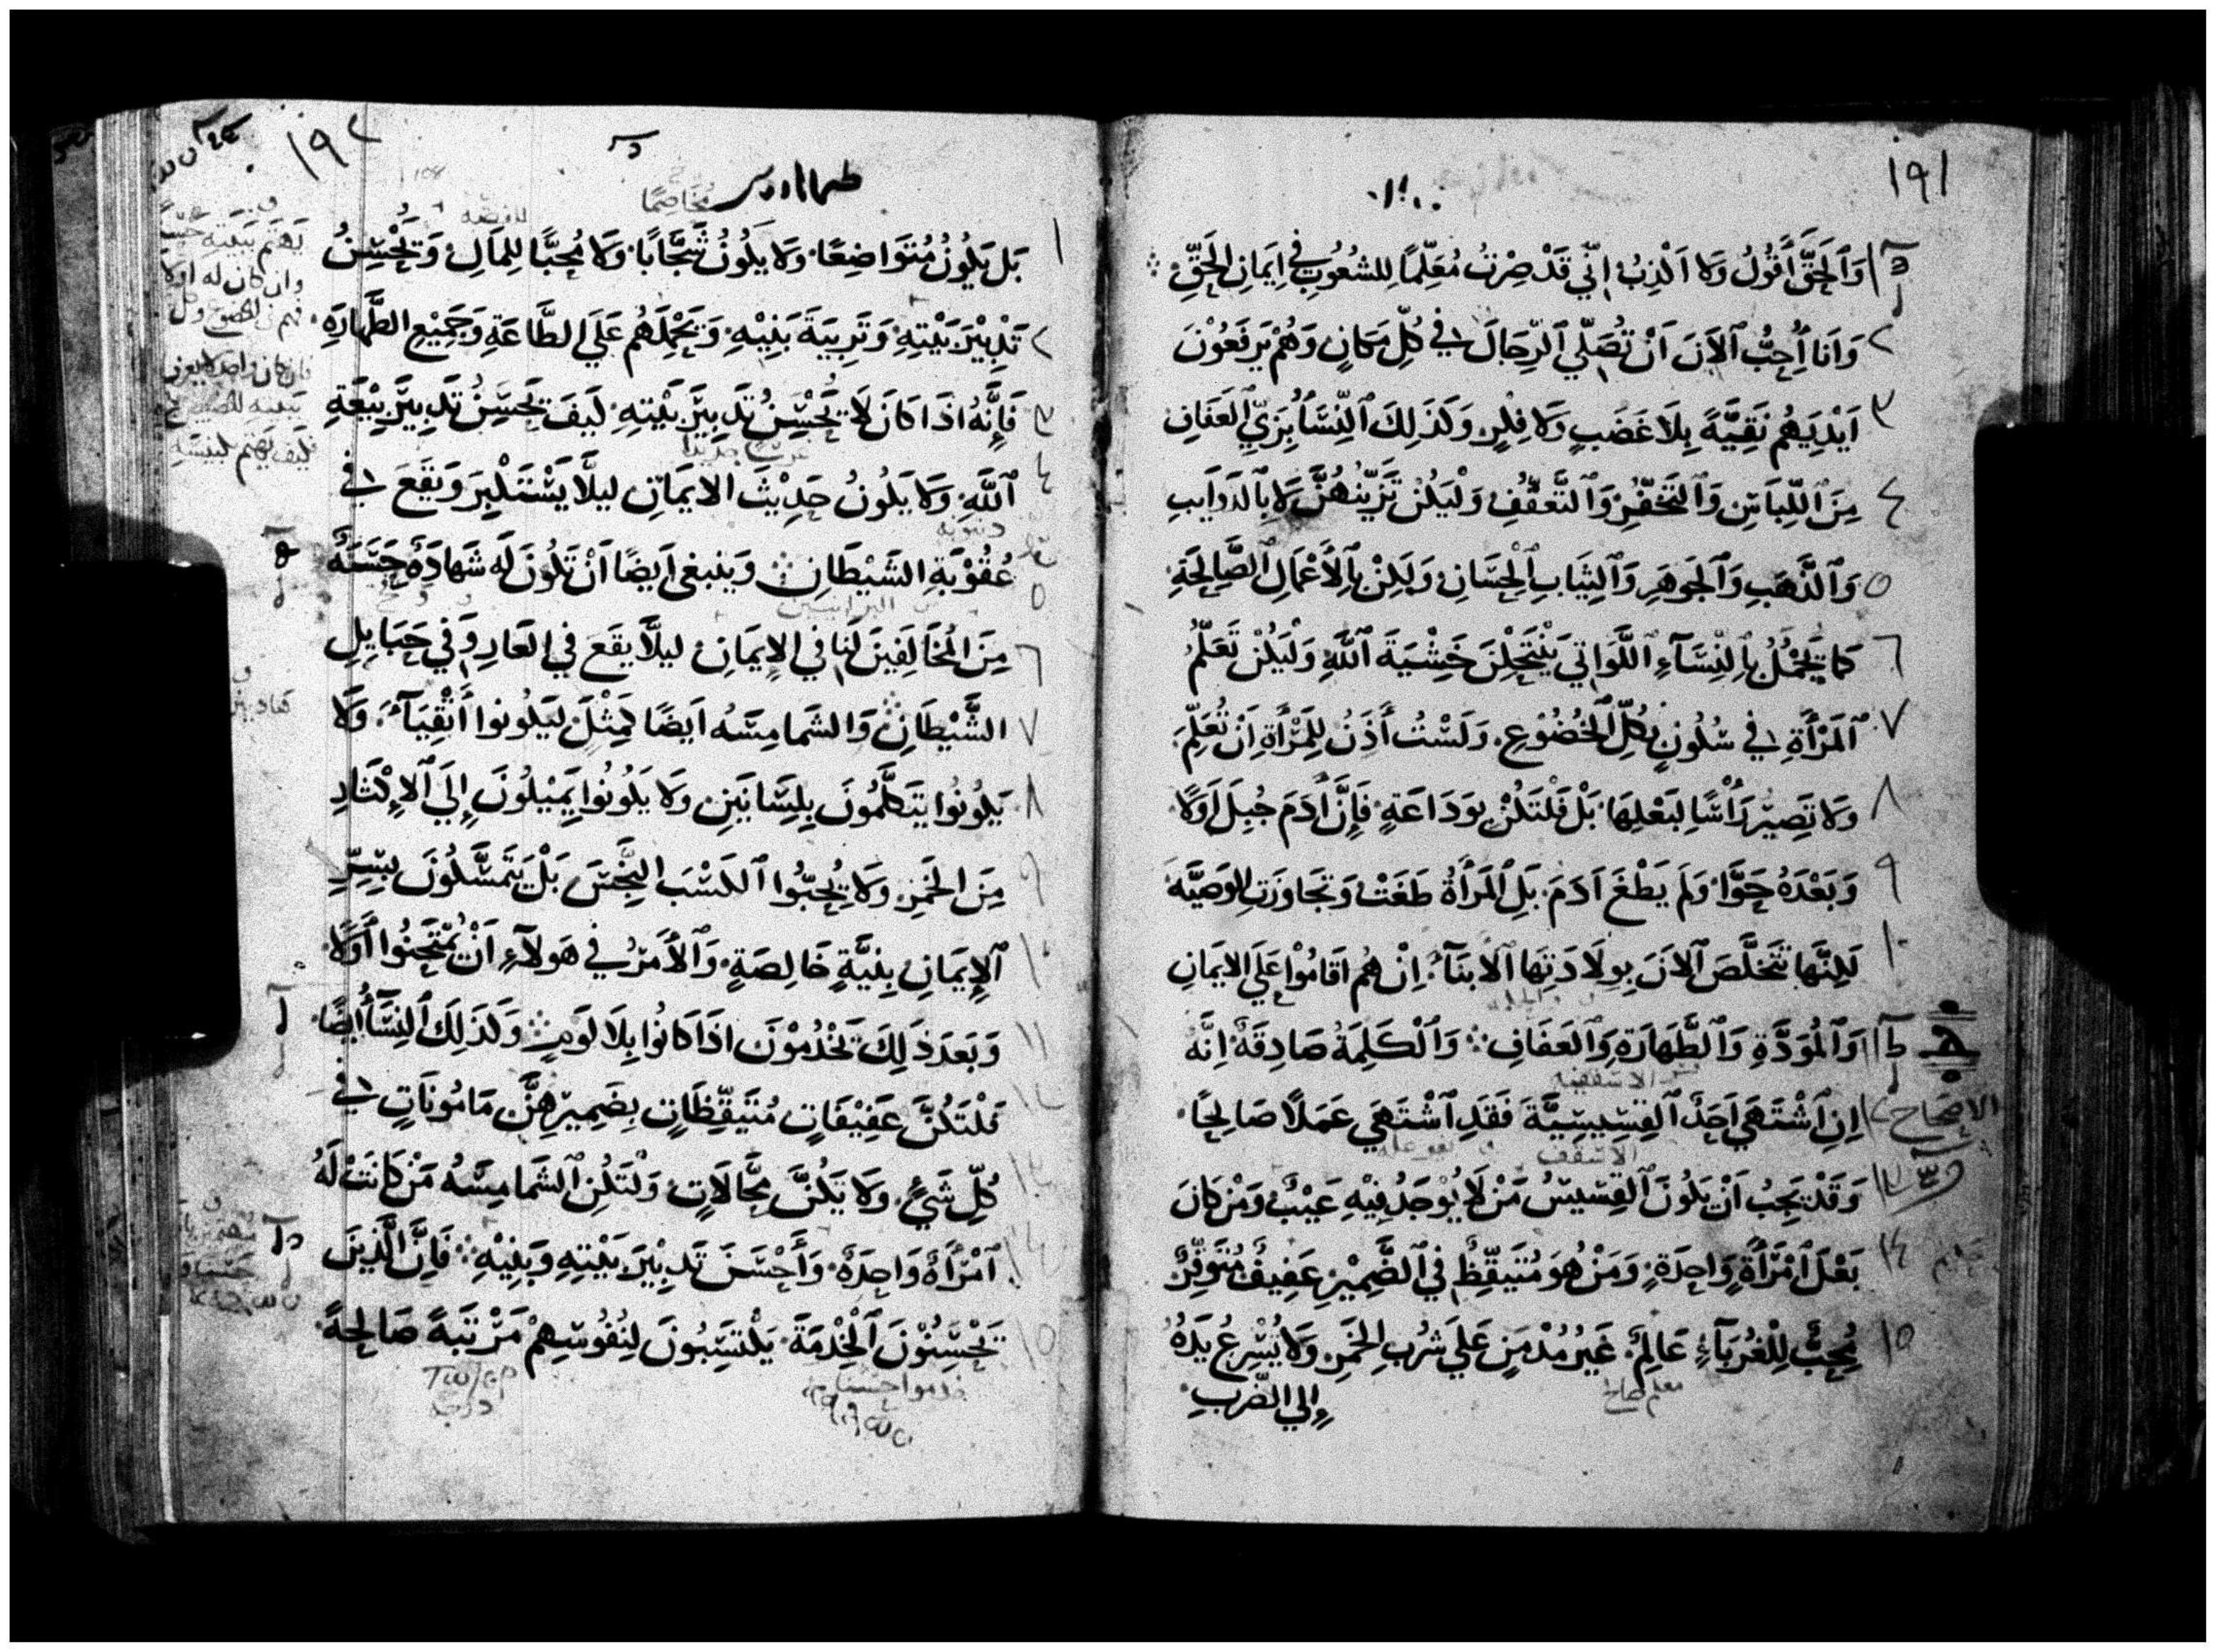 ١٩١
وَٱلْحَقَّ أَقُولُ وَلَا اَكْذِبُ اِنِّي قَدْ صِرْتُ مُعَلِّمًا لِلشُعُوبِ فِي اِيمَانِ الْحَقِّ
٢ وَاَنَا أُحِبُّ ٱلآنَ اَنْ تُصَلِّي ٱلرِّجَالَ فِي كُلِّ مَكَانٍ وَهُمْ يَرفَعُوْنَ
٣ اَيْدِيَهُم نَقِيَّةً بِلَا غَضَبٍ وَلَا فِكْرٍ وَكَذَلِكَ ٱلنِّسَآ بِزَيِّ العَفَافِ
٤ مِنَ ٱللِّبَاسِ وَٱلتَخَفُّرِ وَٱلتَّعَفُّفِ وَلْيَكُنْ تَزَيُّنُهُنَّ لَا بِٱلدَوَايبِ
٥ وَٱلذَّهَبِ وَٱلجَوهَرِ وَٱلثِيَابِ ٱلْحِسَانِ وَلَكِنْ بِٱلأَعْمَالِ ٱلصَّالِحَةِ
٦ كَمَا يَجْمُلُ بِٱلنِّسَآءِ ٱللَّوَاتِي يَنْتَحِلْنَ خَشْيَةَ ٱللَّهِ وَلْيَكُنْ تَعَلُّمُ
٧ ٱلمَرْأَةِ فِي سُكُونٍ بِكُلِّ ٱلْخُضُوعِ وَلَسْتُ أَذَنُ لِلمَرْأَةِ اَنْ تُعَلِّمَ
٨ وَلَا تَصِيْرَ رَأْسًا لِبَعْلِهَا بَلْ فَلْتَكُنْ بِوَدَاعَةٍ فَإِنَّ أَدَمَ جُبِلَ اَوَلًا
٩ وَبَعْدَهُ حَوَّا وَلَم يَطْغَ اَدَمَ بَلِ ٱلْمَرْأَةُ طَغَتْ وَتَجَاوَزَتِ الوَصِيَّه
١٠ لَكِنَّهَا تَتَخَلَّصَ ٱلآنَ بِوِلَادَتِهَا ٱلأبنَآءَ اِنْ هُم اَقَامُوْا عَلَي الايمَانِ
وَٱلْمُوَدَّةِ وَٱلطَّهَارَةِ وَٱلعَفَافِ وَٱلْكَلِمَةُ صَادِقَةٌ اِنَّهُ
الاسقفيه
الاصحاح
اِنِ ٱشْتَهَي اَحَدٌ ٱلقِسِّيسِيَّةَ فَقَدِ ٱشْتَهَي عَمَلًا صَالِحًا
الاسقف
وَقَدْ يَجِبُ اَنْ يَكُونَ ٱلقِسِّيسُ مَنْ لَا يُوْجَدُ فِيْهِ عَيْبٌ وَمَنْ كَانَ
١٤ بَعْلَ ٱمْرَأَةٍ وَاحِدَةٍ وَمَنْ هُوَ مُتَيَقِّظٌ فِي ٱلضَّمِيْرِ عَفِيفٌ مُتَوَقِّرٌ
١٥ مُحِبٌّ لِلْغُرَبَآءِ عَالِمٌ غَيْرُ مُدْمِنٍ عَلَي شُرْبِ الخَمْرِ وَلَا يُسْرِعُ يَدَهُ
إِلي الضَّربِ
معلم صالح
١٩٢
طيماثاوس
مُخَاصِمًا
١ بَل يَكُونُ مُتَوَاضِعًا وَلَا يَكُونُ شَجَّابًا وَلَا مُحِبًّا لِلمَالِ وَيُحْسِنُ
٢ تَدْبِيْرَ بَيْتِهِ وَتَربِيَةَ بَنِيْهِ وَيَحْمِلَهُم عَلَي الطَّاعَةِ وَجَمِيْعِ الطَّهَارَهِ
٣ فَإِنَّهُ اذَا كَانَ لَا يُحْسِنُ تَدبِيَرَ بَيْتِهِ كَيفَ يُحسِنُ تَدبِيَر بِيْعَةِ
٤ ٱللَّهِ وَلَا يَكُونُ حَدِيْثَ الايمَانِ ليلَّا يَسْتَكْبِرَ وَيَقَعَ فِي
٥ عُقُوْبَةِ الشَيْطَانِ وَينبغي اَيضًا اَنْ تَكُونَ لَه شَهَادَةٌ حَسَنَةٌ
٦ مِنَ المُخَالِفِينَ لَنَا فِي الإيمَانِ ليلَّا يَقَعَ فِي العَارِ وَفِي حَبَايِلِ
٧ الشَّيْطَانِ وَالشَمامِسَه اَيضًا كَمِثْلَ ليَكُونوا أَتْقِيَآءَ وَلَا
٨ يَكُونُوا يَتَكَلَّمُونَ بِلِسَانَينِ وَلَا يَكُونُوا يَمِيْلُونَ إِلَي ٱلإِكْثَارِ
٩ مِنَ الخَمرِ وَلَا يُحِبُّوا ٱلكَسْبَ النَّجِسَ بَلْ يَتَمَسَّكُونَ بِسِرِّ
١٠ ٱلإِيمَانِ بِنِيَّةٍ خَالِصَةٍ وَٱلأَمرُ فِي هَولآءِ اَنْ يُمْتَحَنُوا أَوَلًا
١١ وَبَعدَ ذَلِكَ يَخْدُمُوْنَ اذَا كَانُوا بِلَا لَومٍ وَكَذَلِكَ ٱلنِسَآ أَيضًا
١٢ فَلْتَكُنَّ عَفِيْفَاتٍ مُتَيَقِّظَاتٍ بِضَمِيرِهِنَّ مَامُونَاتٍ فِي
١٣ كُلِّ شَيٍْ وَلَا يَكُنَّ مَحَّالَاتٍ وَلْتَكُنِ ٱلشَمامِسَهُ مَنْ كَانَتْ لَهُ
١٤ ٱمْرَأَةٌ وَاحِدَةٌ وَأَحْسَنَ تَدبِيْرَ بَيْتِهِ وَبَنِيْهِ فَاِنَّ الَّذِينَ
١٥ يُحْسِنُوْنَ ٱلْخِدْمَةَ يَكْتَسِبُونَ لِنُفُوسِهِمْ مَرْتَبَةً صَالِحةً
خدموا حسنا
درجه